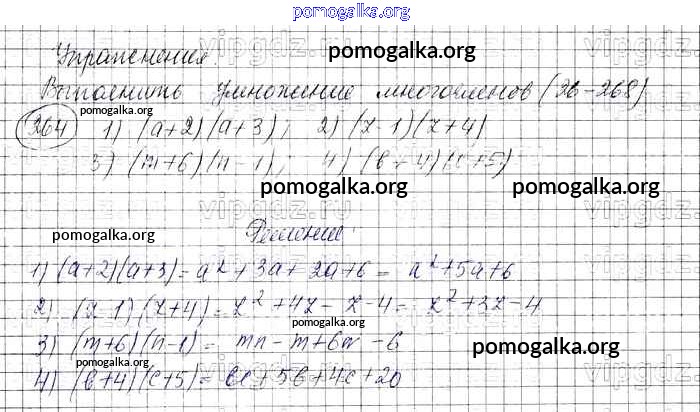 pomogalka.org
Упражнения.
pomogalka.org
Выполнить умножение многочленов (26-268)
pomogalka.org
264 1) (a+2)(a+3); 2) (z-1)(z+4)
3) (m+6)(n-1); 4) (b+4)(c+5)
pomogalka.org pomogalka.org
vipgdz.ru
Решение:
pomogalka.org
1) (a+2)(a+3)= a²+3a+2a+6= a²+5a+6
2) (z-1)(z+4)= z²+4z-z-4= z²+3z-4
pomogalka.org
3) (m+6)(n-1)= mn-m+6n-6
pomogalka.org
4) (b+4)(c+5)= bc+5b+4c+20
pomogalka.org